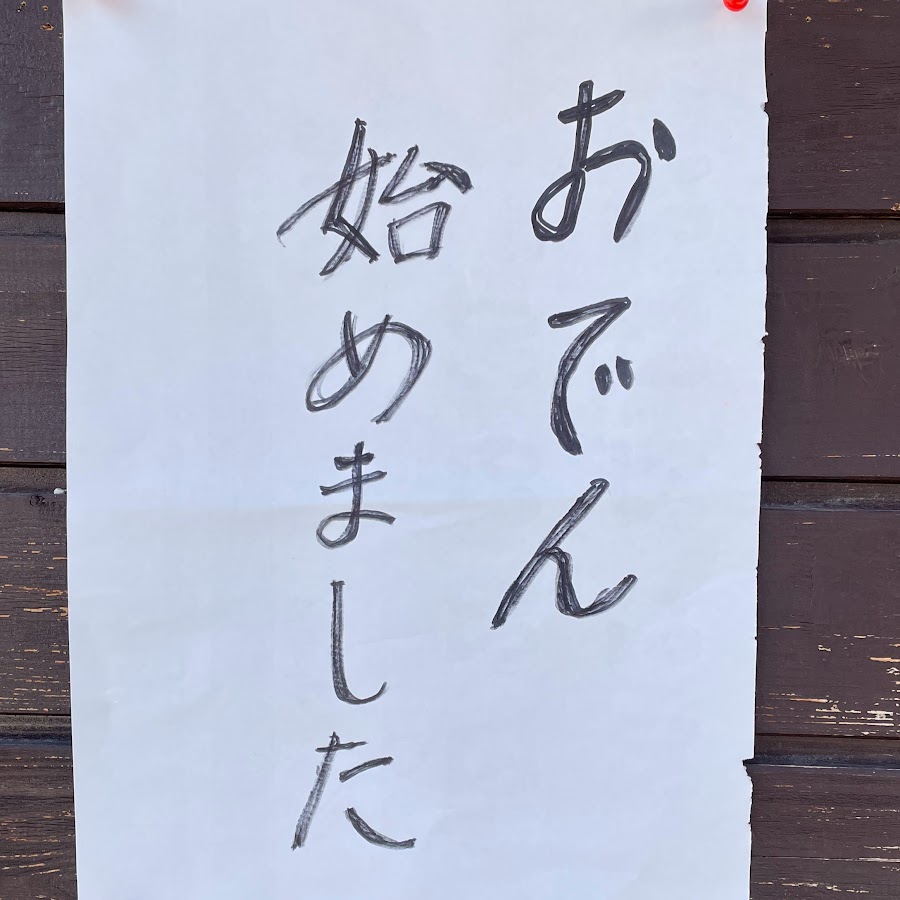 おでん
始めました